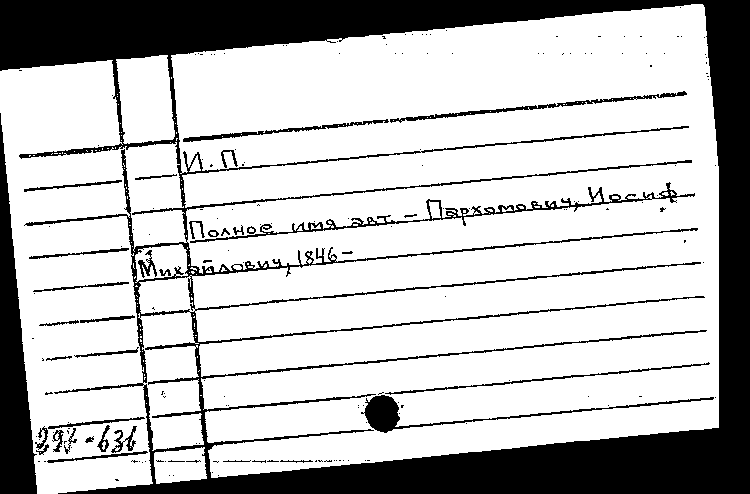 И. П.
Полное имя авт. – Пархомович, Иосиф
Михайлович, 1846 –